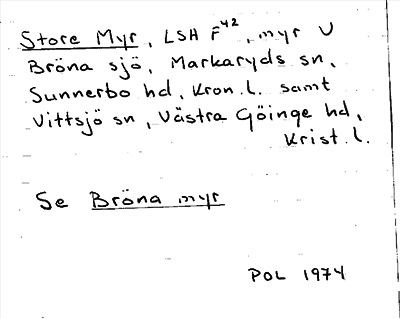 Store Myr, LSH F42, myr V
Bröna sjö, Markaryds sn,
Sunnerbo hd, Kron. l. samt
Vittsjö sn, Västra Göinge hd,
Krist. l.
Se Bröna myr
POL 1974